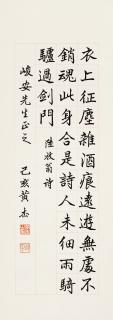 衣上征塵雜酒痕遠遊無處不
銷魂此身合是詩人未細雨騎
驢過劍門 陸放翁詩
峻安先生正之
己亥黃杰